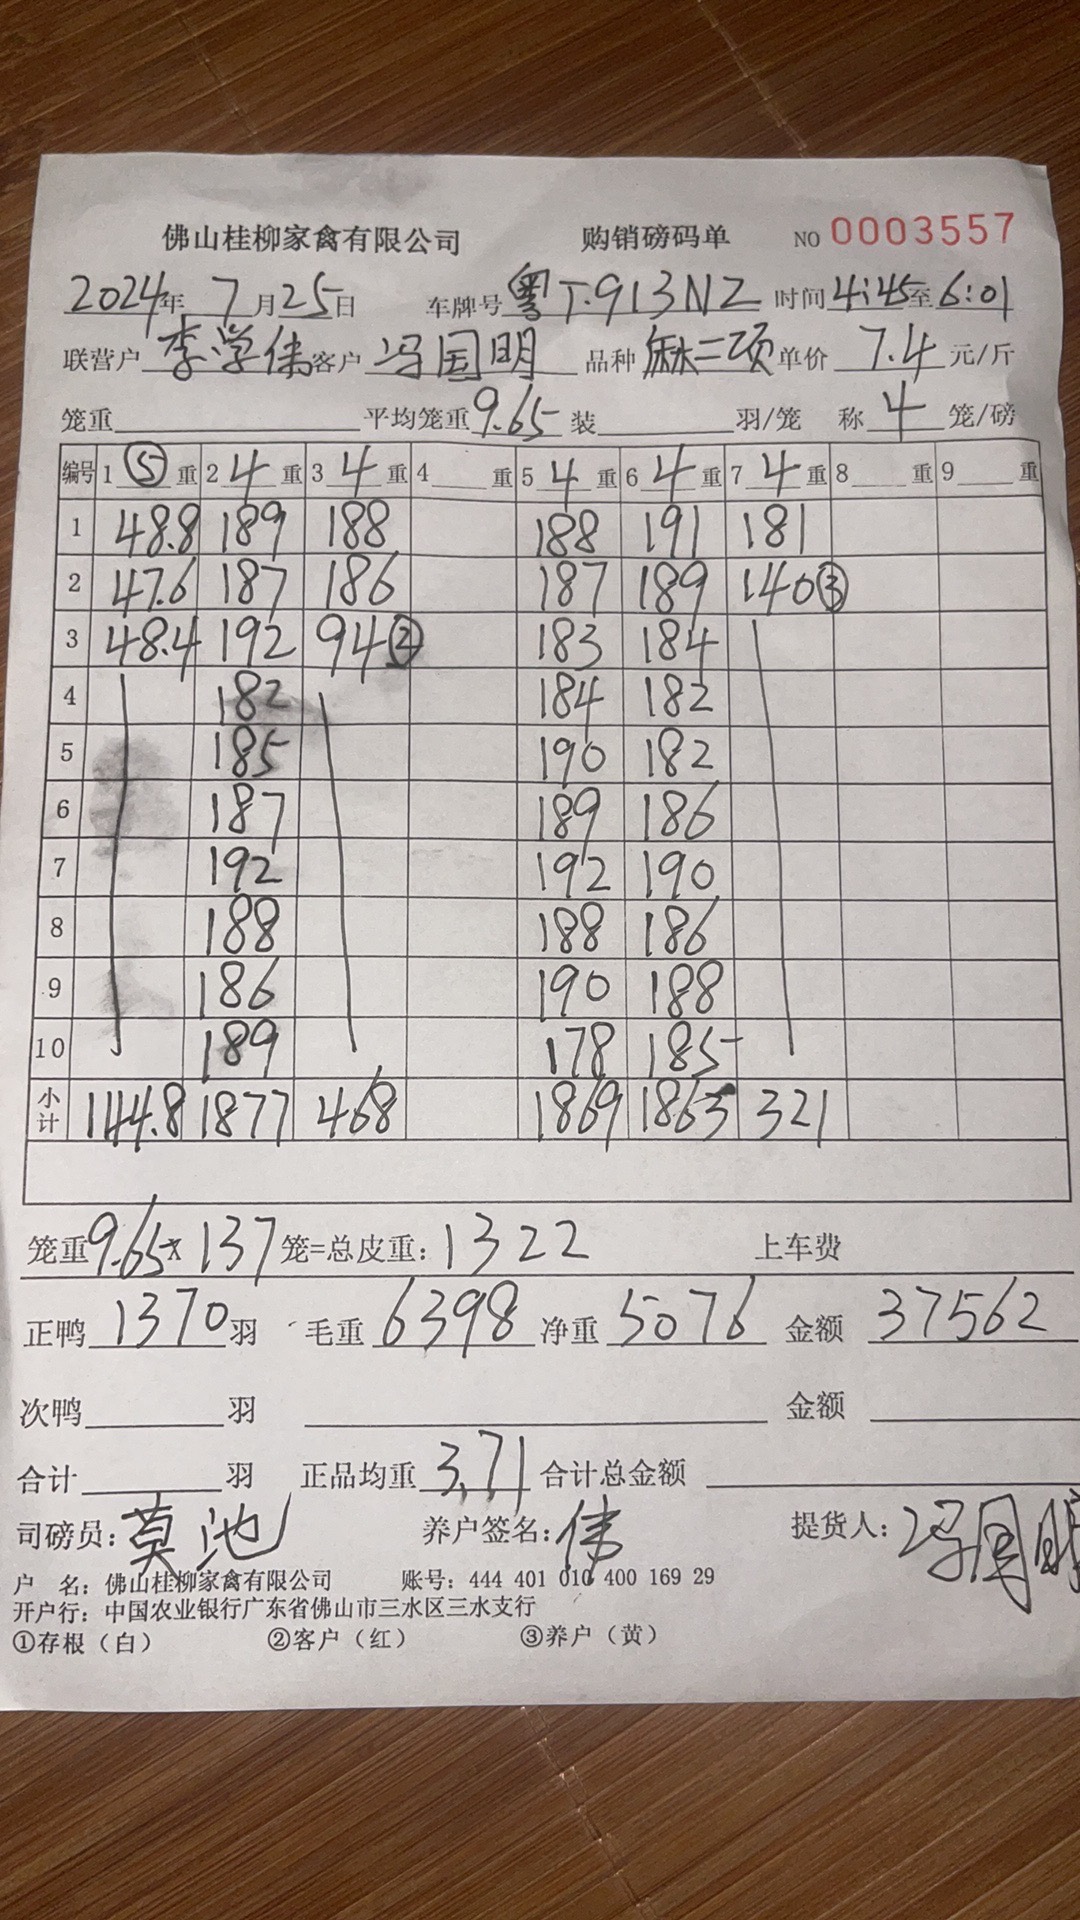 佛山桂柳家禽有限公司 购销磅码单 NO 0003557
2024年 7月25日 车牌号 粤T·913NZ 时间 4:45至6:01
联营户 李学伟 客户 冯国明 品种 麻二项 单价 7.4 元/斤
笼重 平均笼重 9.65 装 羽/笼 称 4 笼/磅
编号 1 ⑤ 重 2 4 重 3 4 重 4 重 5 4 重 6 4 重 7 4 重 8 重 9 重
1 48.8 189 188 188 191 181
2 47.6 187 186 187 189 140③
3 48.4 192 94② 183 184
4 182 184 182
5 185 190 182
6 187 189 186
7 192 192 190
8 188 188 186
9 186 190 188
10 189 178 185
小计 144.8 1877 468 1869 1863 321
笼重 9.65 x 137 笼=总皮重: 1322 上车费
正鸭 1370 羽 毛重 6398 净重 5076 金额 37562
次鸭 羽 金额
合计 羽 正品均重 3.71 合计总金额
司磅员: 莫池 养户签名: 伟 提货人: 冯国明
户 名: 佛山桂柳家禽有限公司 账号: 444 401 010 400 169 29
开户行: 中国农业银行广东省佛山市三水区三水支行
①存根(白) ②客户(红) ③养户(黄)